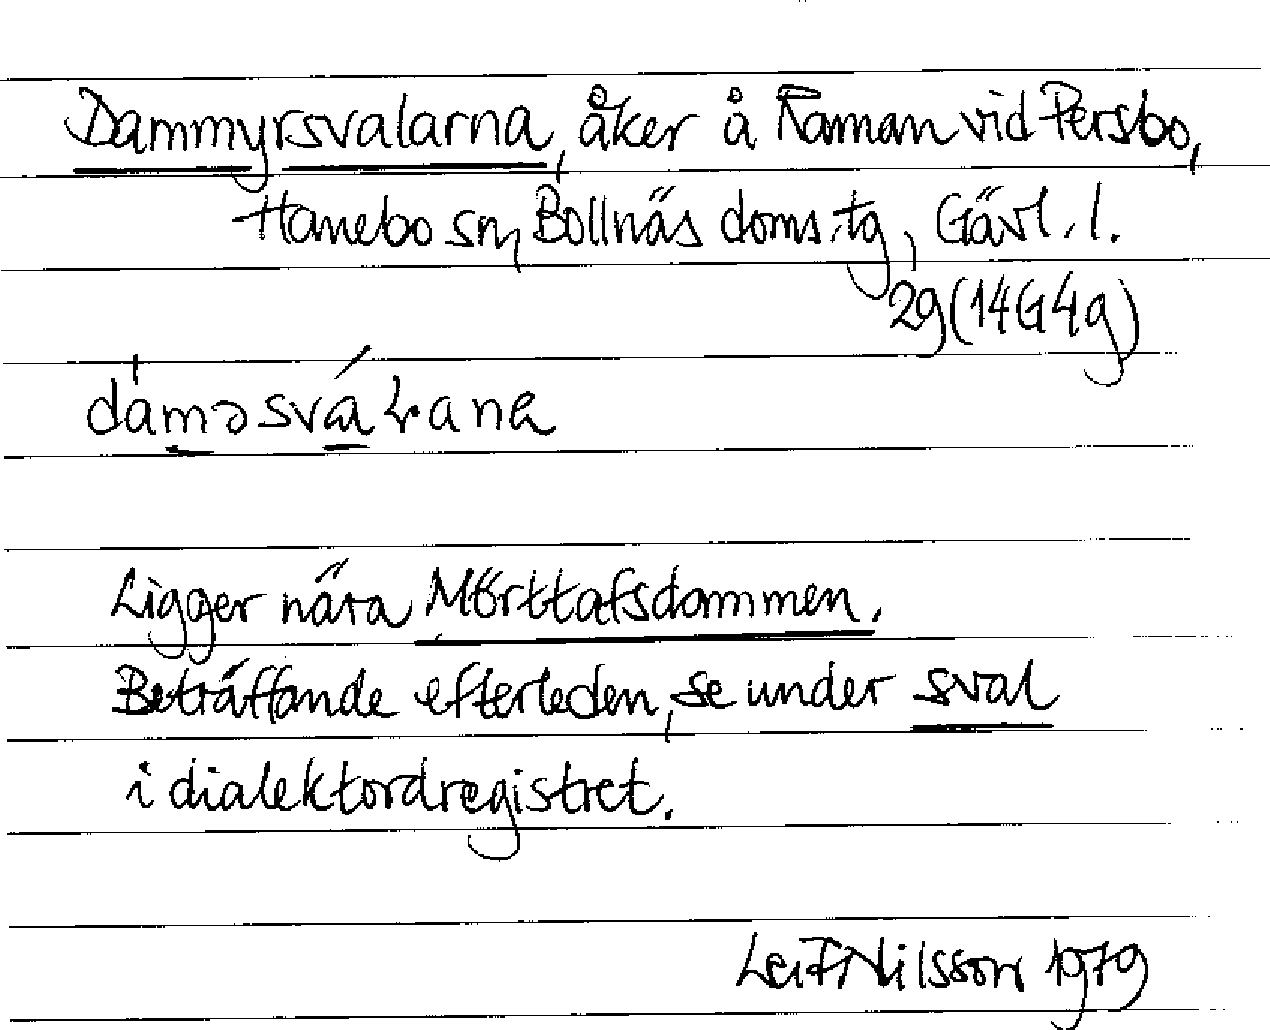 Dammyrsvalarna, åker å Raman vid Persbo,
Hanebo sn, Bollnäs doms.tg, Gävl. l.
29(14G4g)
Ligger nära Mörttafsdammen.
Beträffande efterleden, se under sval
i dialektordregistret.
Leif Nilsson 1979